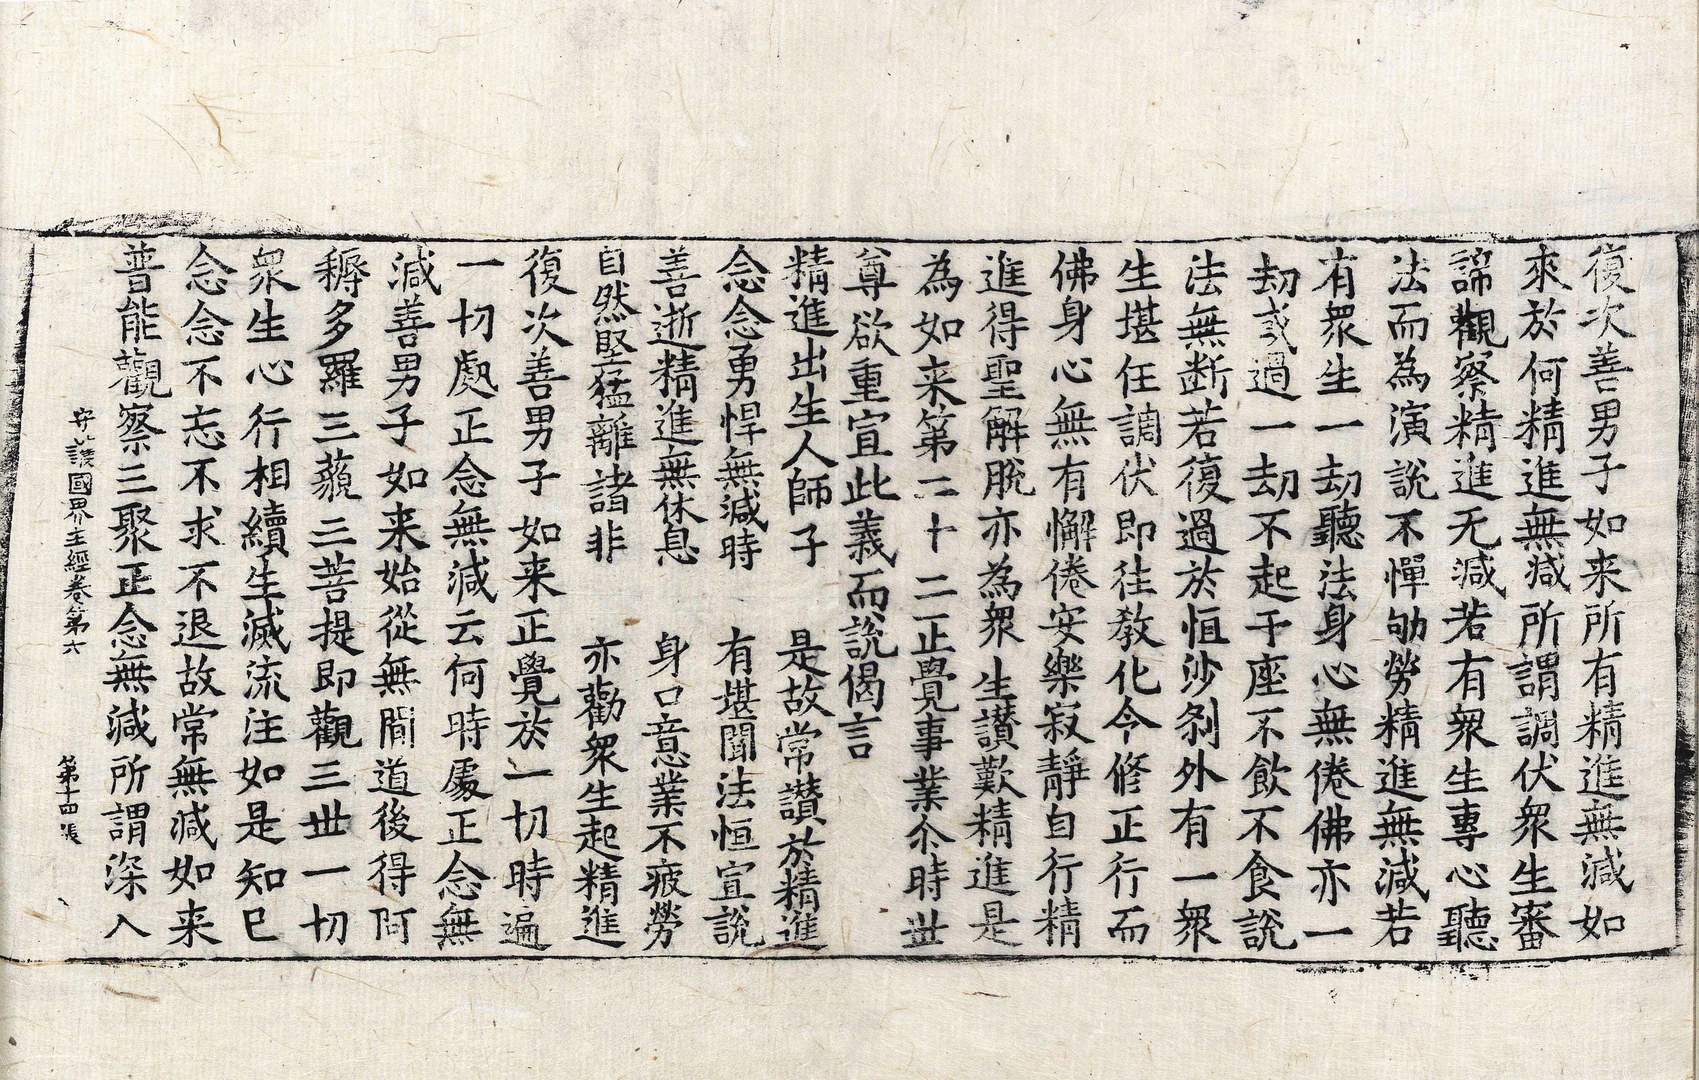 復次善男子如来所有精進無減如
來於何精進無減所謂調伏衆生審
諦觀察精進无減若有衆生專心聽
法而為演說不憚劬勞精進無減若
有衆生一劫聽法身心無倦佛亦一
劫或過一劫不起于座不飲不食說
法無斷若復過於恒沙剎外有一衆
生堪任調伏即往教化令修正行而
佛身心無有懈倦安樂寂靜自行精
進得聖解脫亦為衆生讃歎精進是
為如来第二十二正覺事業尒時世
尊欲重宣此義而說偈言
精進出生人師子　是故常讃於精進
念念勇悍無減時　有堪聞法恒宣說
善逝精進無休息　身口意業不疲勞
自然堅猛離諸非　亦勸衆生起精進
復次善男子如来正覺於一切時遍
一切處正念無減云何時處正念無
減善男子如来始從無間道後得阿
耨多羅三藐三菩提即觀三世一切
衆生心行相續生滅流注如是知已
念念不忘不求不退故常無減如来
普能觀察三聚正念無減所謂深入
守護國界主經卷第六　第十四張